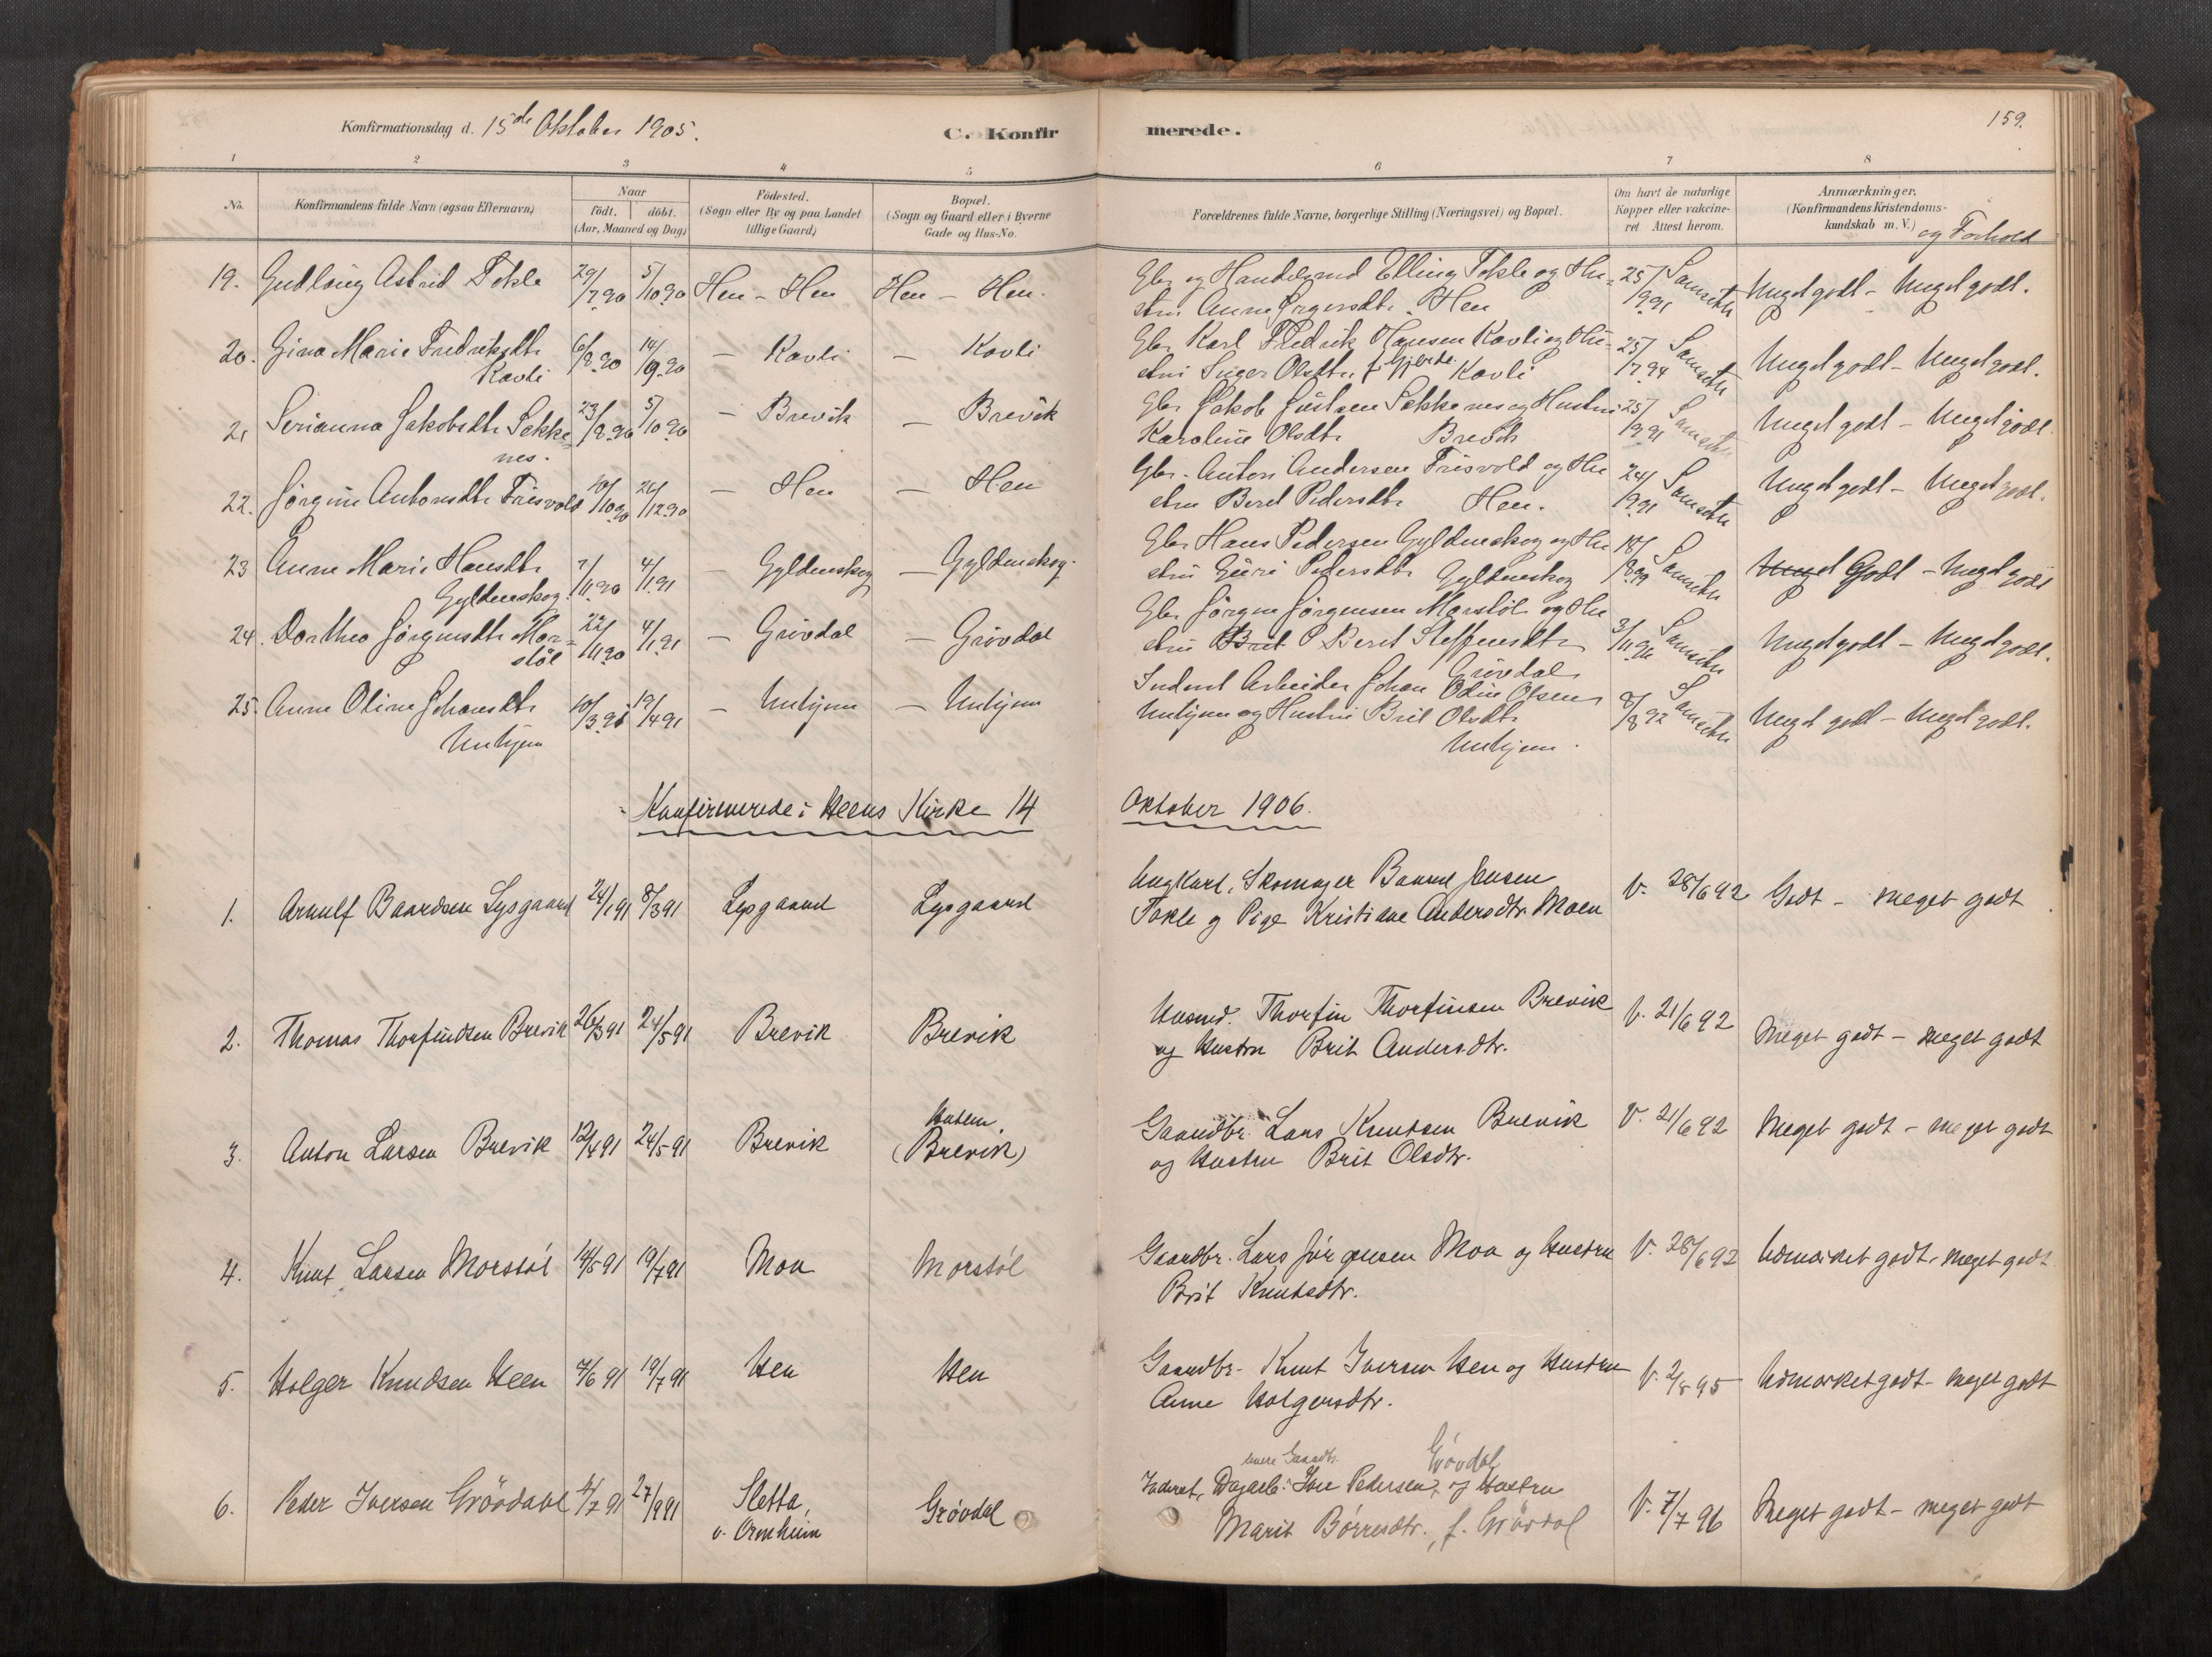 Konfirmationsdag d. 15de Oktober 1905.
C. Konfir
merede.
159.
1 2 3 4 5 6 7 8
No.
Konfirmandens fulde Navn (ogsaa Efternavn)
Naar
födt. döbt.
(Aar, Maaned og Dag)
Födested.
(Sogn eller By og paa Landet
tillige Gaard)
Bopæl.
(Sogn og Gaard eller i Byerne
Gade og Hus-No.
Forældrenes fulde Navne, borgerlige Stilling (Næringsvei) og Bopæl.
Om havt de naturlige
Kopper eller vakcine-
ret Attest herom.
Anmærkninger.
(Konfirmandens Kristendoms-
kundskab m. V.)
og Forhold
19. Gudlaug Astrid Tokle 29/7 90 5/10 90 Hen - Hen Hen - Hen. Gbr og Handelsmd Elling Tokle og Hu- 25/9 91 Samseth Meget godt - Meget godt.
stru Anne Jørgensdtr. Hen
20. Gina Marie Fredriksdtr 6/8 90 14/9 90 - Kavli - Kavli Gbr Karl Fredrik Hansen Kavli og Hu- 25/7 94 Samseth Meget godt - Meget godt.
Kavli
stru Inger Olsdtr f. Gjerde. Kavli
21 Serianna Jakobsdtr Sekke- 23/8 90 5/10 90 - Brevik - Brevik Gbr Jakob Justsen Sekkenes og Hustru 25/9 91 Samseth Meget godt - Meget godt.
nes.
Karoline Olsdtr Brevik
22. Jørgine Antonsdtr Frisvold 10/10 90 26/12 90 - Hen - Hen Gbr. Anton Andersen Frisvold og Hu 24/9 91 Samseth Meget godt - Meget godt.
stru Beret Pedersdtr Hen.
23 Anne Marie Hansdtr 7/11 90 4/1 91 - Gyldenskog - Gyldenskog. Gbr Hans Pedersen Gyldenskog og Hu 18/8 99 Samseth Meget Godt - Meget godt
Gyldenskog.
stru Guri Pedersdtr Gyldenskog
24. Dorthea Jørgensdtr Mor- 22/11 90 4/1 91 - Grövdal - Grövdal Gbr Jörgen Jörgensen Morstöl og Hu 3/11 96 Samseth Meget godt - Meget godt.
stöl
stru Brit P Beret Steffensdtr
Grövdal
25. Anne Oline Johansdtr 10/3 91 19/4 91 - Unhjem - Unhjem Inderst Arbeider Johan Odin Olsen 8/8 92 Samseth Meget godt - Meget godt.
Unhjem
Unhjem og Hustru Brit Olsdtr
Unhjem.
Konfirmerede i Heens Kirke 14 Oktober 1906.
1. Arnulf Baardsen Lysgaard 24/1 91 8/3 91 Lysgaard Lysgaard Ungkarl, Skomager Baard Jensen V. 28/6 92 Godt - meget godt
Tokle og Pige Kristiane Andersdtr. Moen
2. Thomas Thorfindsen Brevik 26/3 91 24/5 91 Brevik Brevik Husmd. Thorfin Thorfinsen Brevik V. 21/6 92 Meget godt - meget godt
og Hustru Brit Andersdtr.
3. Anton Larsen Brevik 12/4 91 24/5 91 Brevik (Brevik) Gaardbr. Lars Knutsen Brevik V. 21/6 92 Meget godt - meget godt
og Hustru Brit Olsdtr.
4. Knut Larsen Morstöl 14/5 91 19/7 91 Moa Morstöl Gaardbr. Lars Jörgensen Moa og Hustru V. 28/6 92 Udmærket godt - meget godt
Brit Knutsdtr.
5. Holger Knudsen Heen 7/6 91 19/7 91 Hen Hen Gaardbr. Knut Iversen Hen og Hustru V. 2/8 95 Udmærket godt - meget godt
Anne Holgersdtr.
Gaardbr. Grövdal
6. Peder Iversen Grövdal 4/7 91 27/9 91 Sletta, Grövdal Inderst, Dagarb. Iver Pedersen, og Hustru V. 7/7 96 Meget godt - meget godt
v. Ormheim
Marit Börresdtr., f. Grövdal